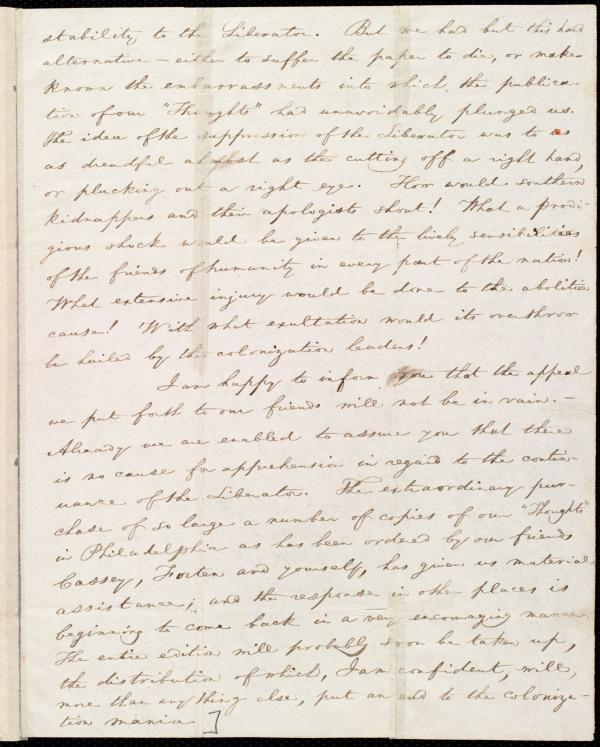 stability to the Liberator. But we had but this hard
alternative — either to suffer the paper to die, or make
known the embarrassments into which the publica-
tion of our "Thoughts" had unavoidably plunged us.
The idea of the suppression of the Liberator was to us
as dreadful almost as the cutting off a right hand,
or plucking out a right eye. How would southern
kidnappers and their apologists shout! What a prodi-
gious shock would be given to the lively sensibilities
of the friends of humanity in every part of the nation!
What extensive injury would be done to the abolition
cause! With what exultation would its overthrow
be hailed by the colonization leaders!
I am happy to inform you that the appeal
we put forth to our friends will not be in vain. —
Already we are enabled to assure you that there
is no cause for apprehension in regard to the contin-
uance of the Liberator. The extraordinary pur-
chase of so large a number of copies of our "Thoughts"
in Philadelphia as has been ordered by our friends
Cassey, Forten and yourself, has given us material
assistance; and the response in other places is
beginning to come back in a very encouraging manner.
The entire edition will probably soon be taken up,
the distribution of which, I am confident, will,
more than any thing else, put an end to the coloniza-
tion mania.]